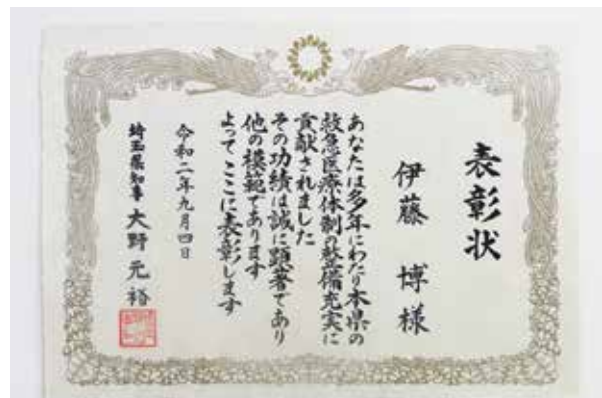 表彰状
伊藤 博様
あなたは多年にわたり本県の
救急医療体制の整備充実に
貢献されました
その功績は誠に顕著であり
他の模範であります
よってここに表彰します
令和二年九月四日
埼玉県知事 大野元裕